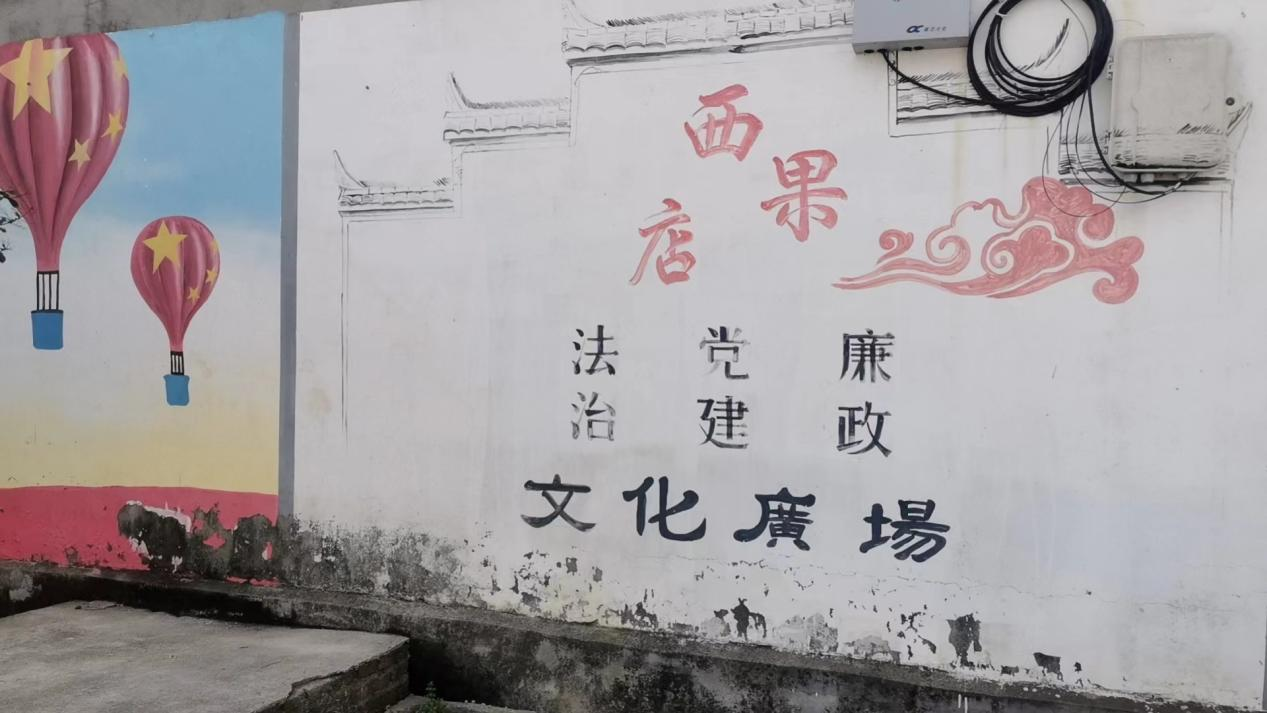 西果店
法治
党建
廉政
文化廣場